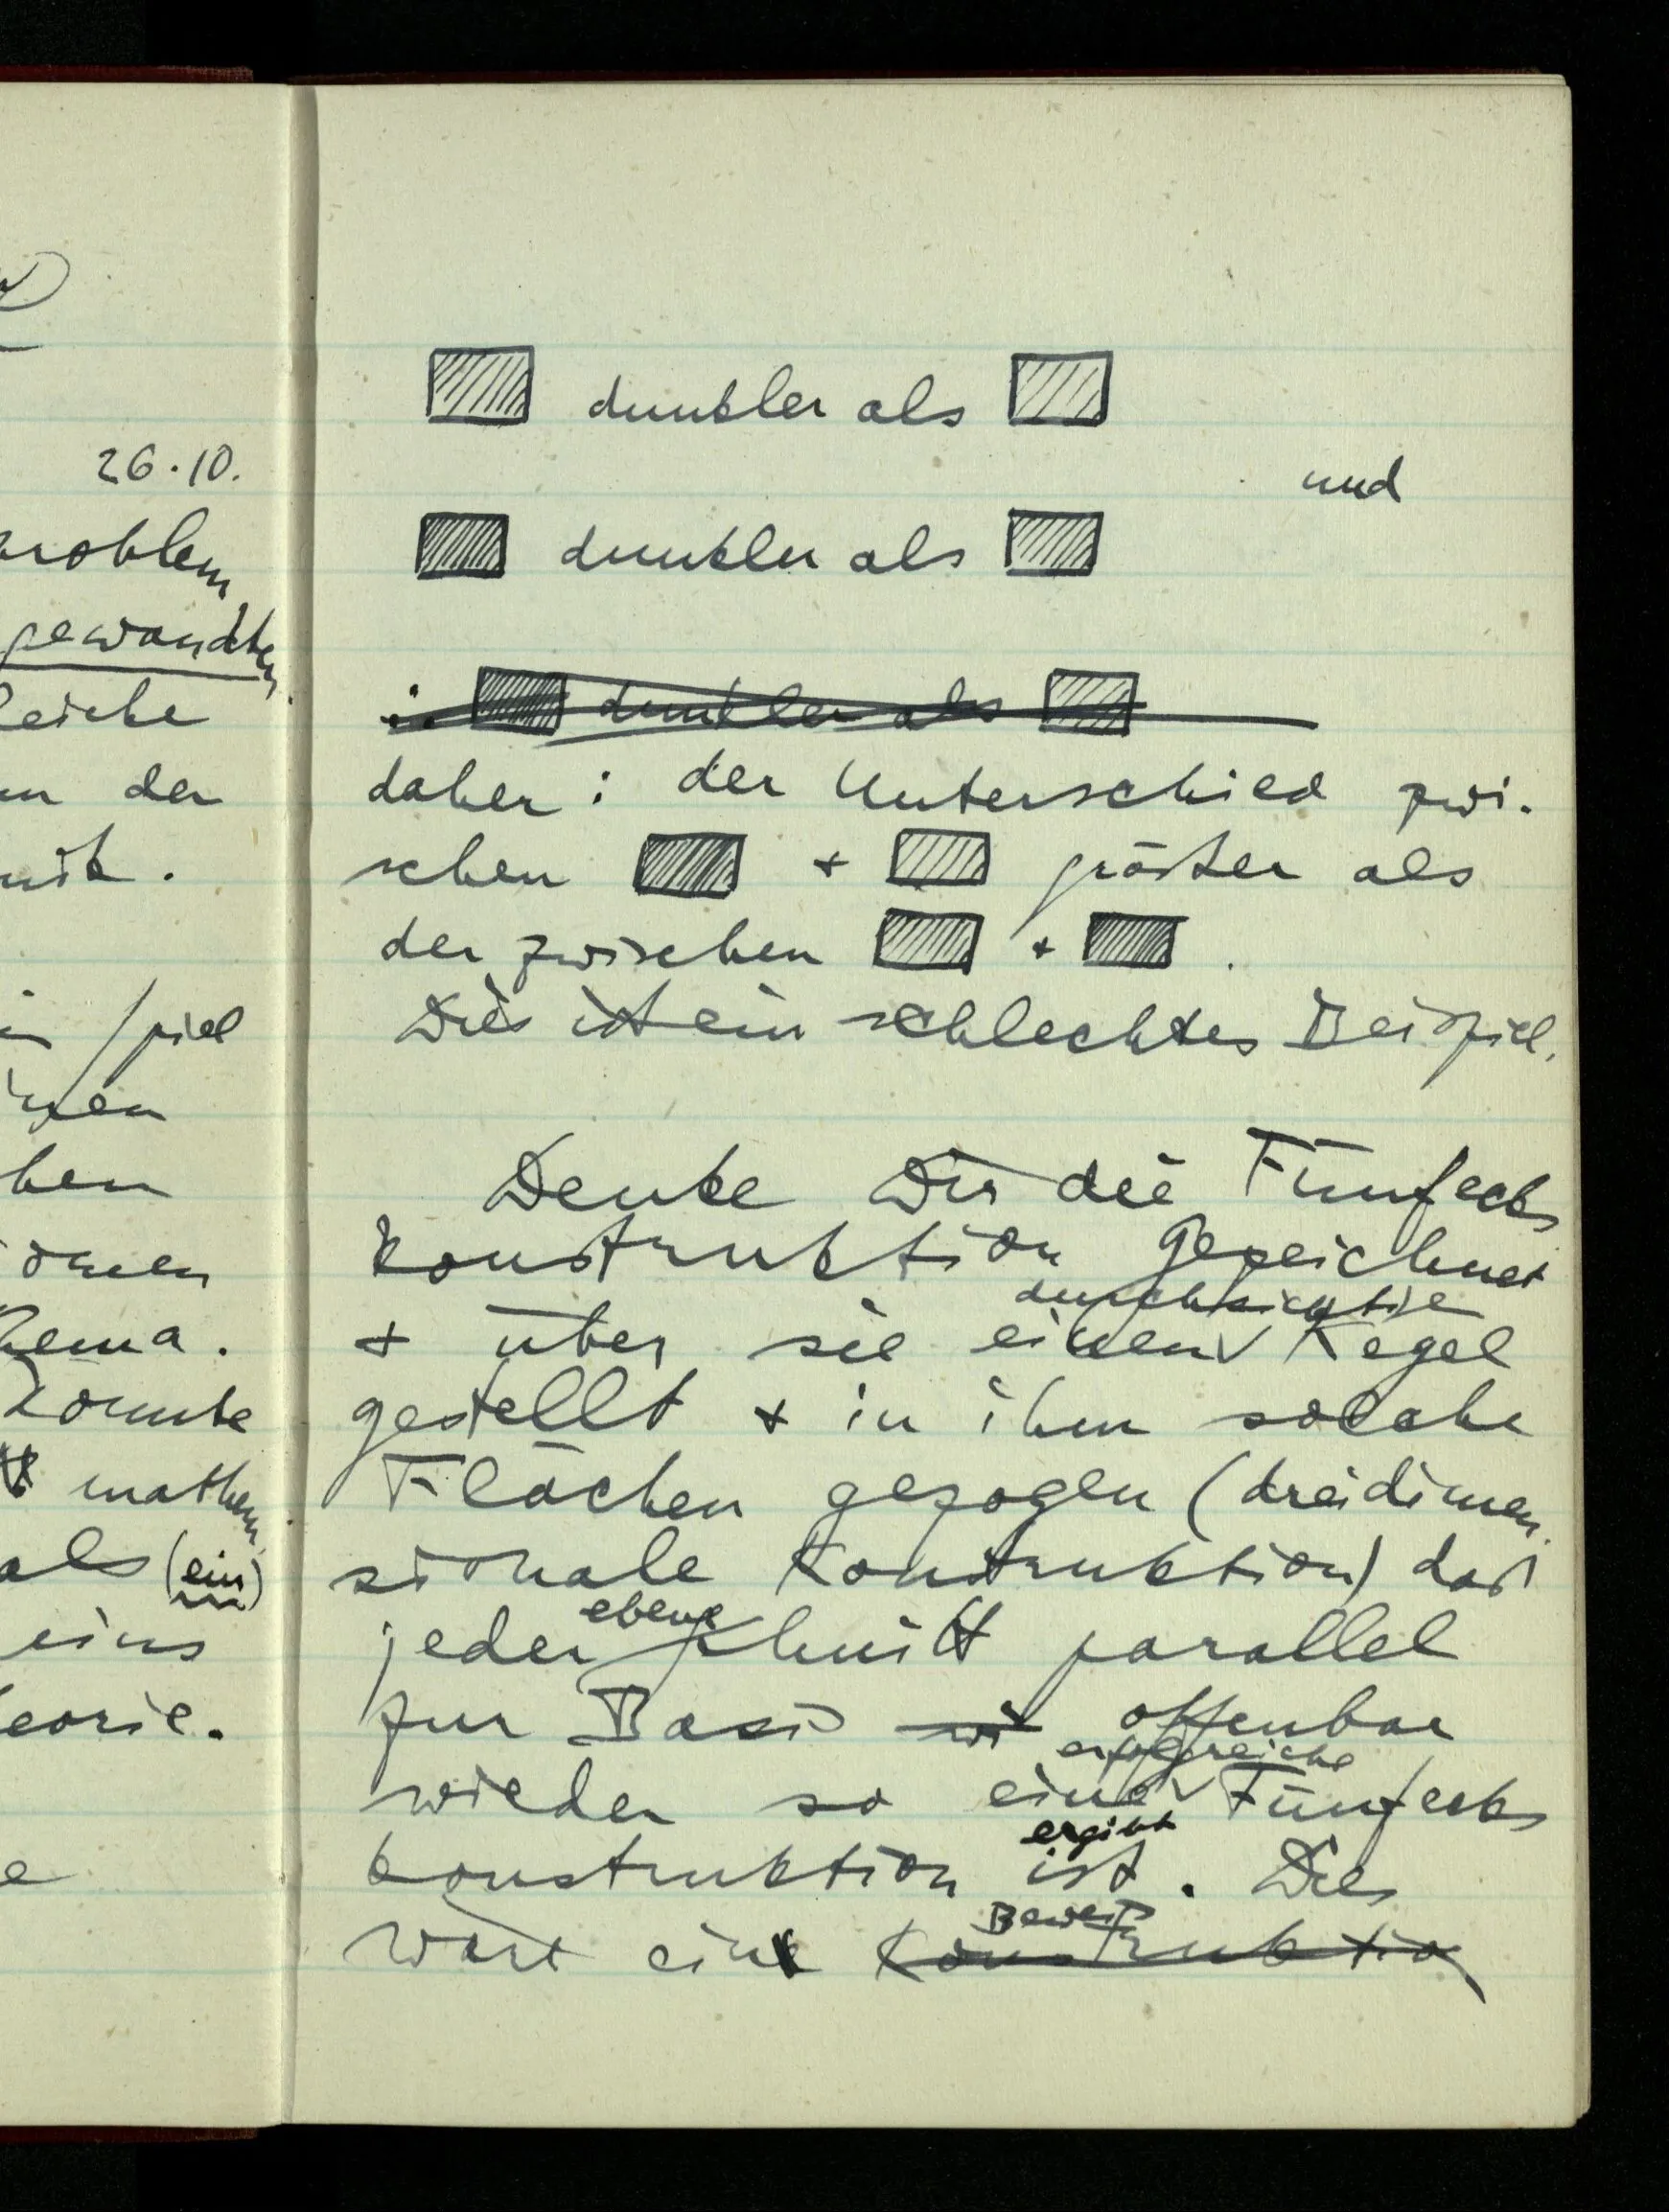 26.10.
problem
gewandten
leiche
der
spiel
hen
hema.
könnte
mathem
als (ein)
eins
eorie.
dunkler als
und
dunkler als
∴ dunkler als
daher: der Unterschied zwi-
schen + größer als
der zwischen + .
Dies ist ein schlechtes Beispiel.
Denke Dir die Fünfecks
konstruktion gezeichnet
durchsichtige
+ über sie einen Kegel
gestellt + in ihm solche
Flächen gezogen (dreidimen-
sionale Konstruktion) daß
ebene
jeder Schnitt parallel
zur Basis wi offenbar
erfolgreiche
wieder so eine Fünfecks
ergibt
konstruktion ist. Dies
Beweis
wäre ein Konstruktio